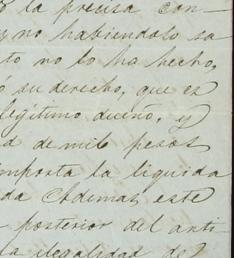 o la precisa con-
y no habiendolo sa
to no lo ha hecho,
ó su derecho, que es
legítimo dueño, y
d de mil pesos
importa la liquida
da Ademas este
posterior del anti-
la ilegalidad de